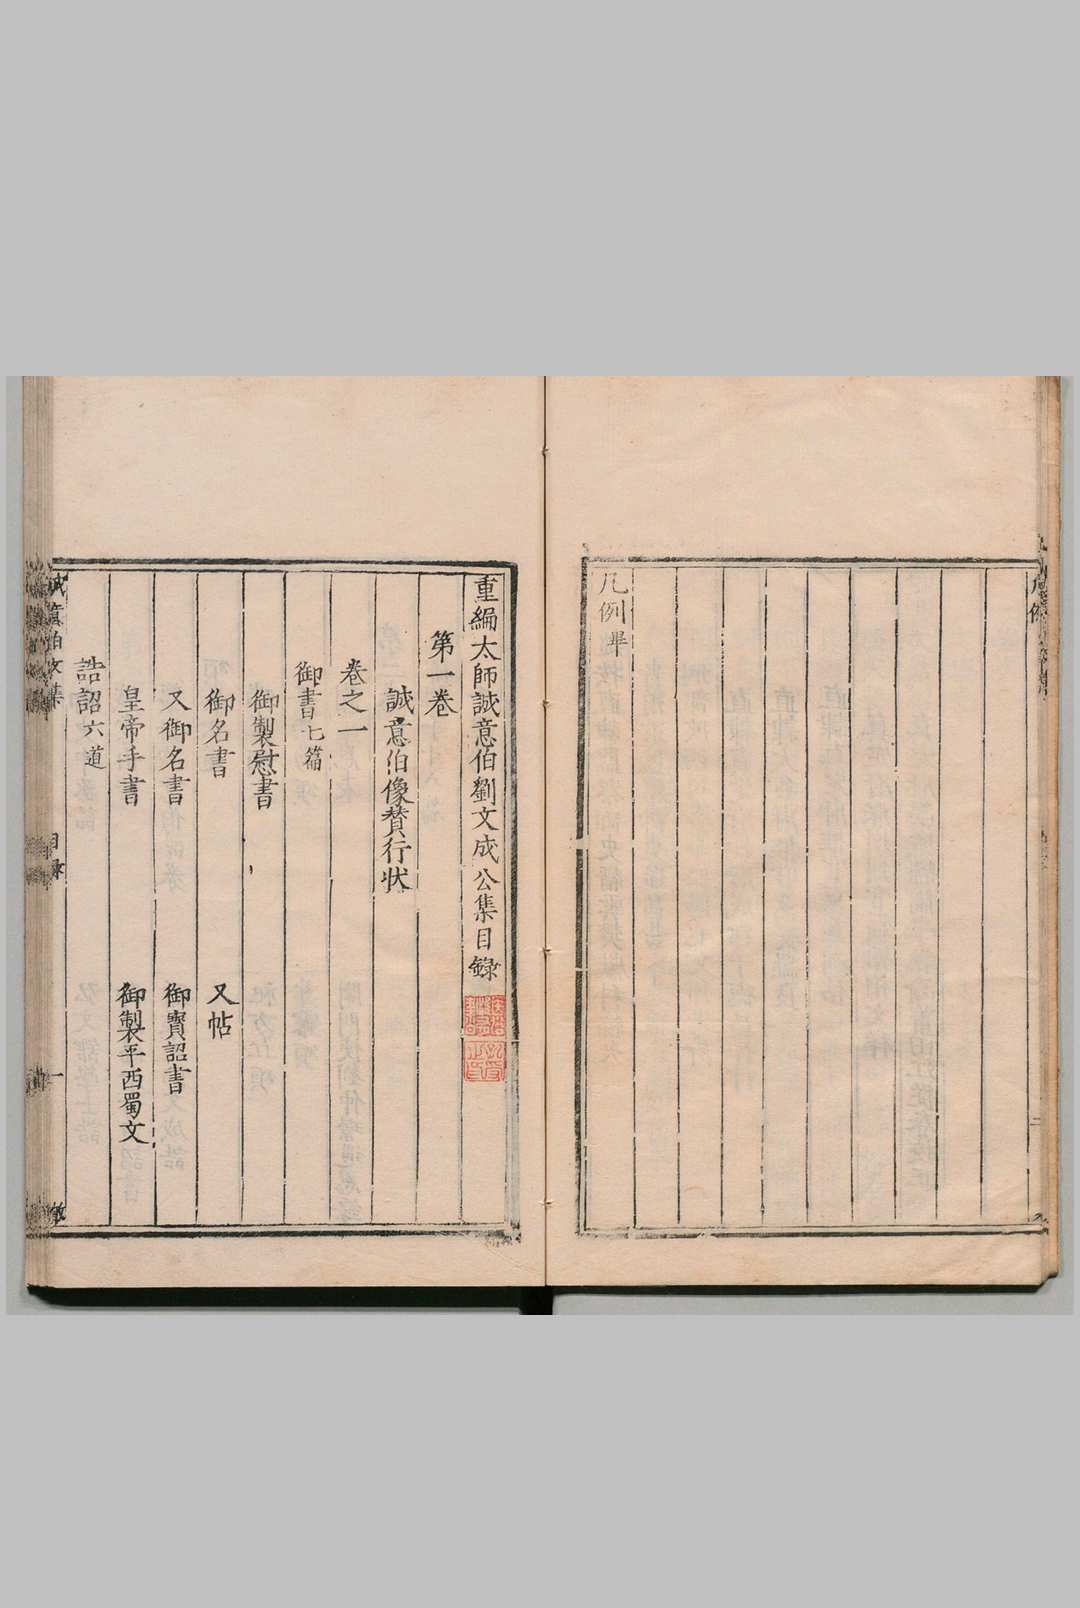 凡例畢
重編太師誠意伯劉文成公集目錄
第一卷
誠意伯像賛行狀
卷之一
御書七篇
御製慰書
御名書 又帖
又御名書 御寶詔書
皇帝手書 御製平西蜀文
誥詔六道
誠意伯文集 目錄 一